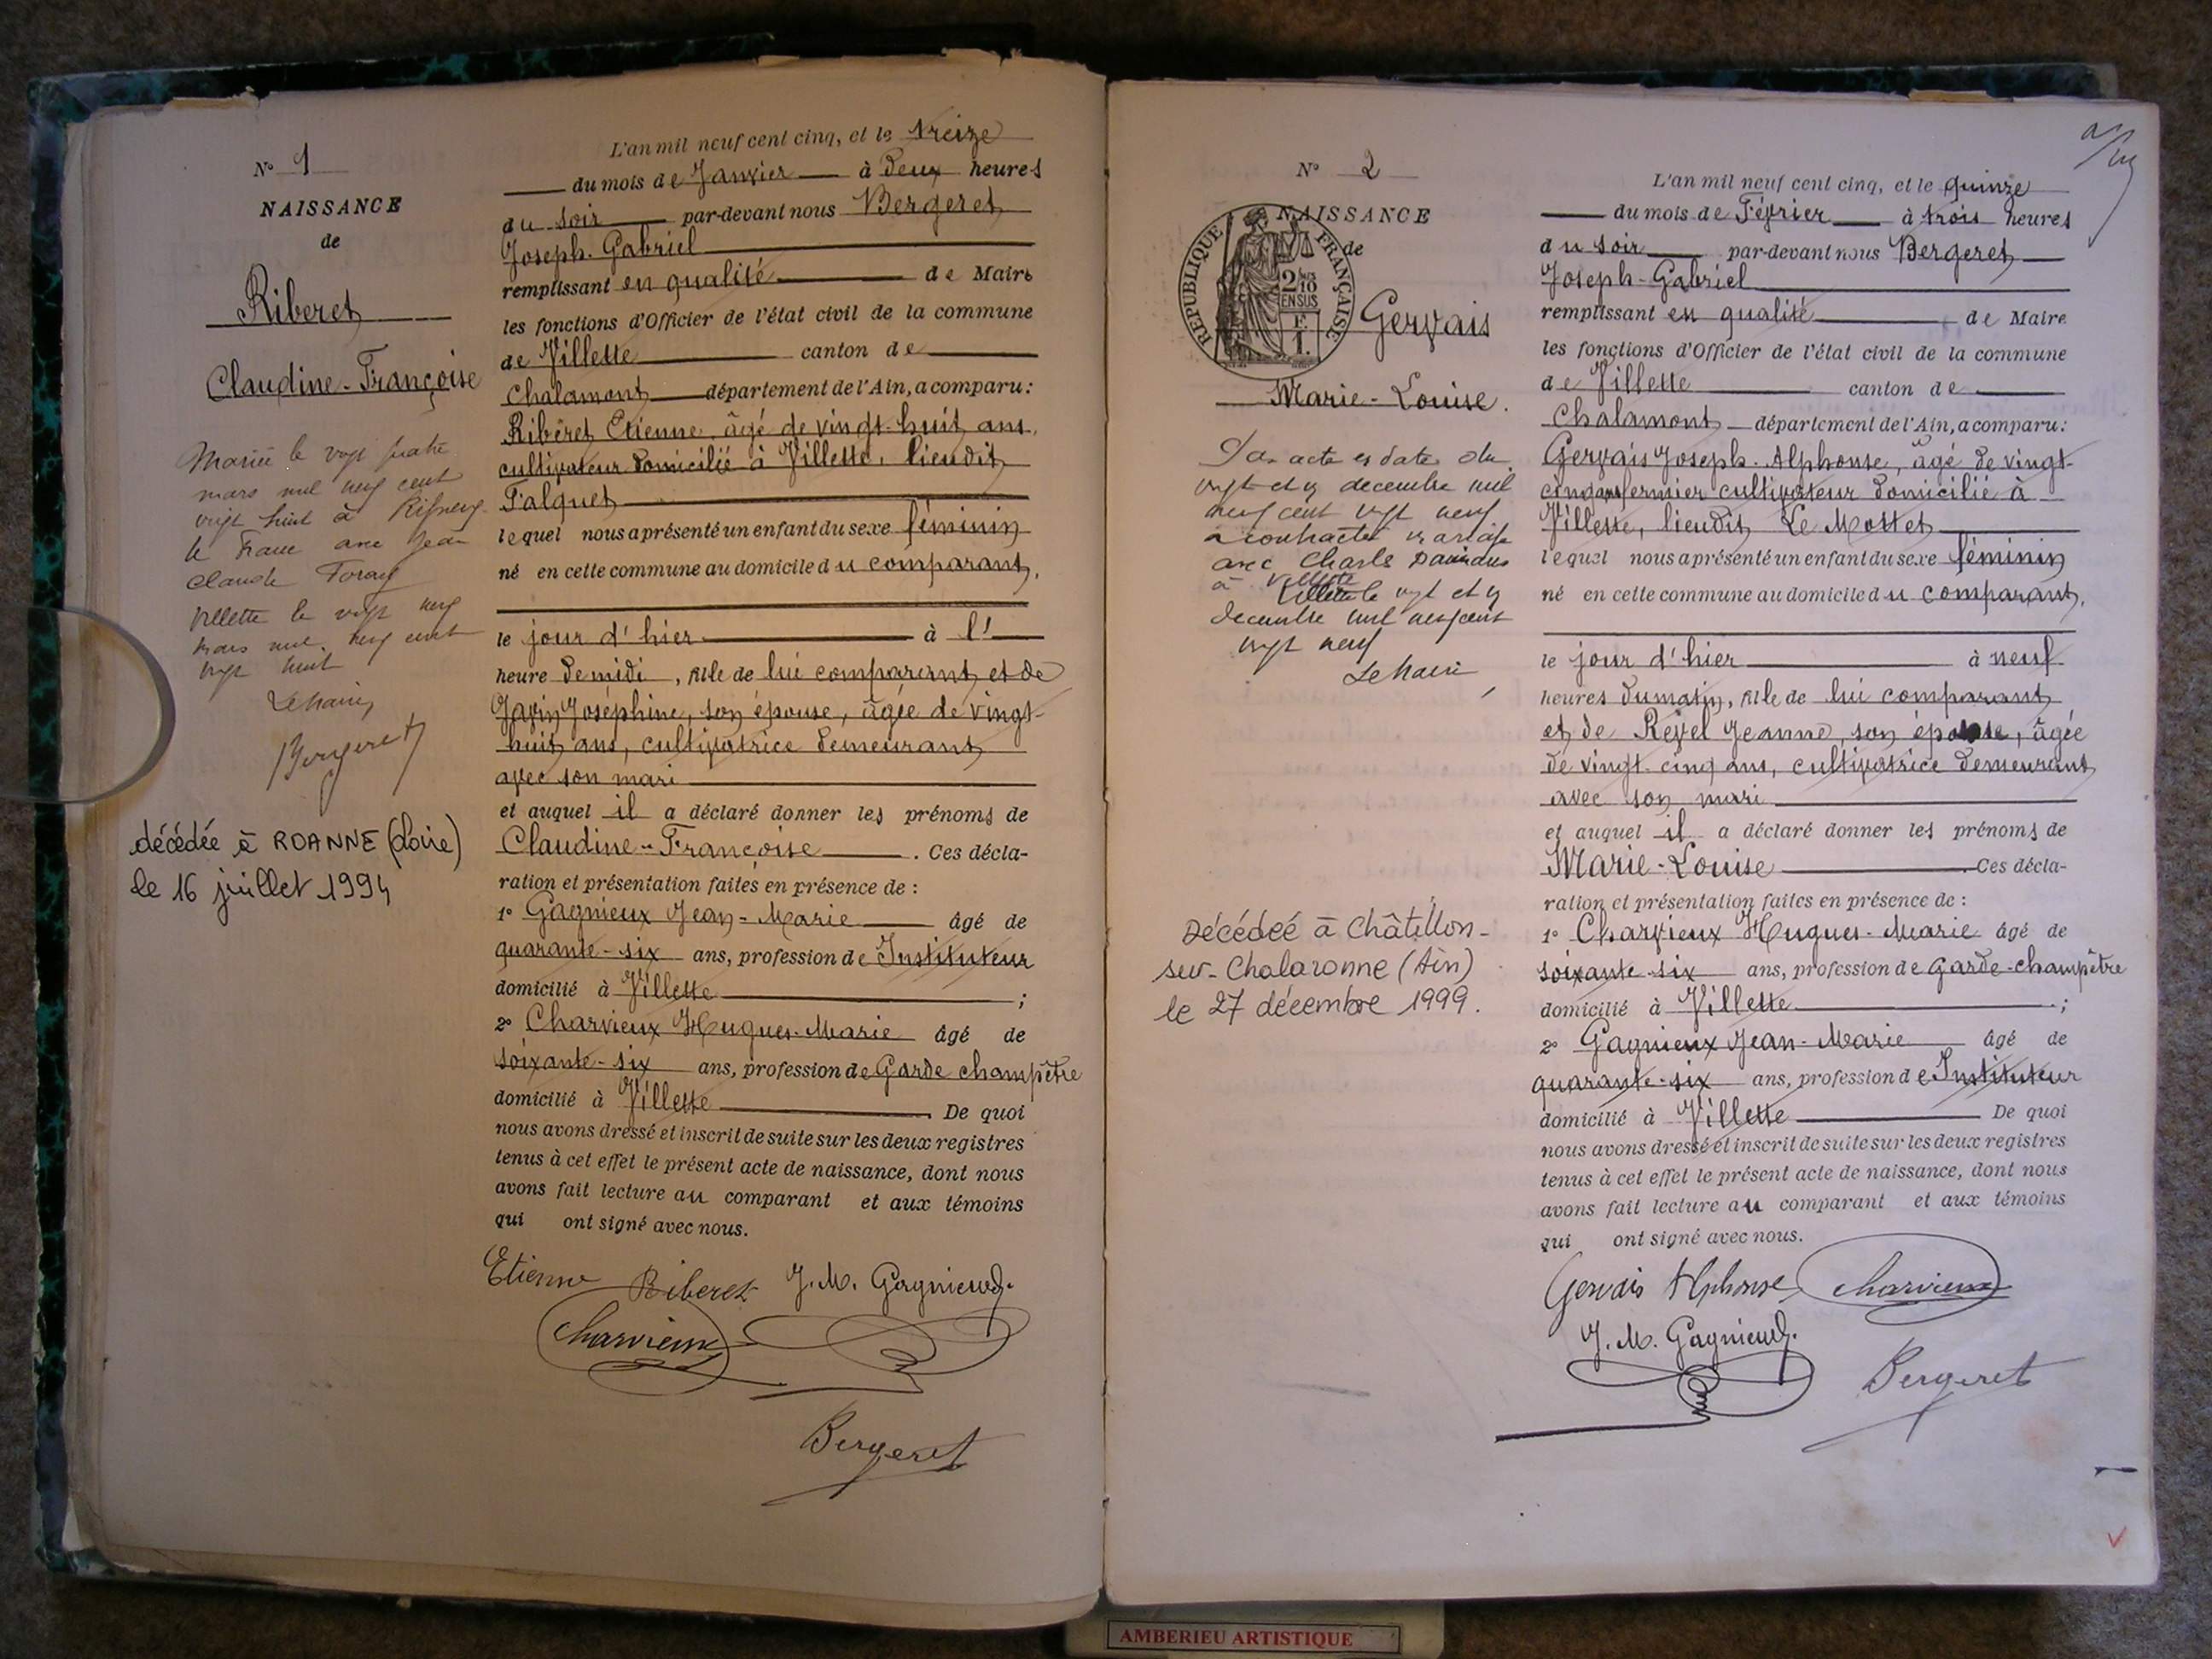 N° 1
NAISSANCE
de
Riberet
Claudine-Françoise
Mariée le vingt quatre
mars mil neuf cent
vingt huit à
le Franc avec Jean
Claude Foray
Villette le vingt neuf
mars mil neuf cent
vingt huit
Le Maire
Bergeret
décédée à ROANNE (Loire)
le 16 juillet 1994
L'an mil neuf cent cinq, et le treize
du mois de Janvier à deux heures
du soir par-devant nous Bergeret
Joseph-Gabriel
remplissant en qualité de Maire
les fonctions d'Officier de l'état civil de la commune
de Villette canton de
Chalamont département de l'Ain, a comparu:
Ribéret Etienne, âgé de vingt-huit ans,
cultivateur domicilié à Villette, lieudit
Falquet
lequel nous a présenté un enfant du sexe féminin
né en cette commune au domicile du comparant,
le jour d'hier à l'
heure de midi, fille de lui comparant et de
Joséphine, son épouse, âgée de vingt-
huit ans, cultivatrice demeurant
avec son mari
et auquel il a déclaré donner les prénoms de
Claudine-Françoise. Ces décla-
ration et présentation faites en présence de :
1° Gagnieux Jean-Marie âgé de
quarante-six ans, profession de Instituteur
domicilié à Villette ;
2° Charvieux Hugues-Marie âgé de
soixante-six ans, profession de Garde champêtre
domicilié à Villette. De quoi
nous avons dressé et inscrit de suite sur les deux registres
tenus à cet effet le présent acte de naissance, dont nous
avons fait lecture au comparant et aux témoins
qui ont signé avec nous.
Etienne Riberet J. M. Gagnieux
Charvieux
Bergeret
N° 2
NAISSANCE
de
REPUBLIQUE FRANÇAISE
2/10
EN SUS
Gervais
Marie-Louise.
Par acte en date du
vingt et un decembre mil
neuf cent vingt neuf
a contracté mariage
avec Charles
à Villette
le vingt et un
decembre mil neuf cent
vingt neuf
Le Maire
Décédée à Châtillon-
sur-Chalaronne (Ain)
le 27 décembre 1999.
L'an mil neuf cent cinq, et le quinze
du mois de Février à trois heures
du soir par-devant nous Bergeret
Joseph-Gabriel
remplissant en qualité de Maire
les fonctions d'Officier de l'état civil de la commune
de Villette canton de
Chalamont département de l'Ain, a comparu:
Gervais Joseph-Alphonse, âgé de vingt-
cinq ans fermier cultivateur domicilié à
Villette, lieudit Le Mottet
lequel nous a présenté un enfant du sexe féminin
né en cette commune au domicile du comparant,
le jour d'hier à neuf
heures du matin, fille de lui comparant
et de Revel Jeanne, son épouse, âgée
de vingt-cinq ans, cultivatrice demeurant
avec son mari
et auquel il a déclaré donner les prénoms de
Marie-Louise. Ces décla-
ration et présentation faites en présence de :
1° Charvieux Hugues-Marie âgé de
soixante-six ans, profession de Garde-champêtre
domicilié à Villette ;
2° Gagnieux Jean-Marie âgé de
quarante-six ans, profession de Instituteur
domicilié à Villette De quoi
nous avons dressé et inscrit de suite sur les deux registres
tenus à cet effet le présent acte de naissance, dont nous
avons fait lecture au comparant et aux témoins
qui ont signé avec nous.
Gervais Alphonse Charvieux
J. M. Gagnieux
Bergeret
AMBERIEU ARTISTIQUE